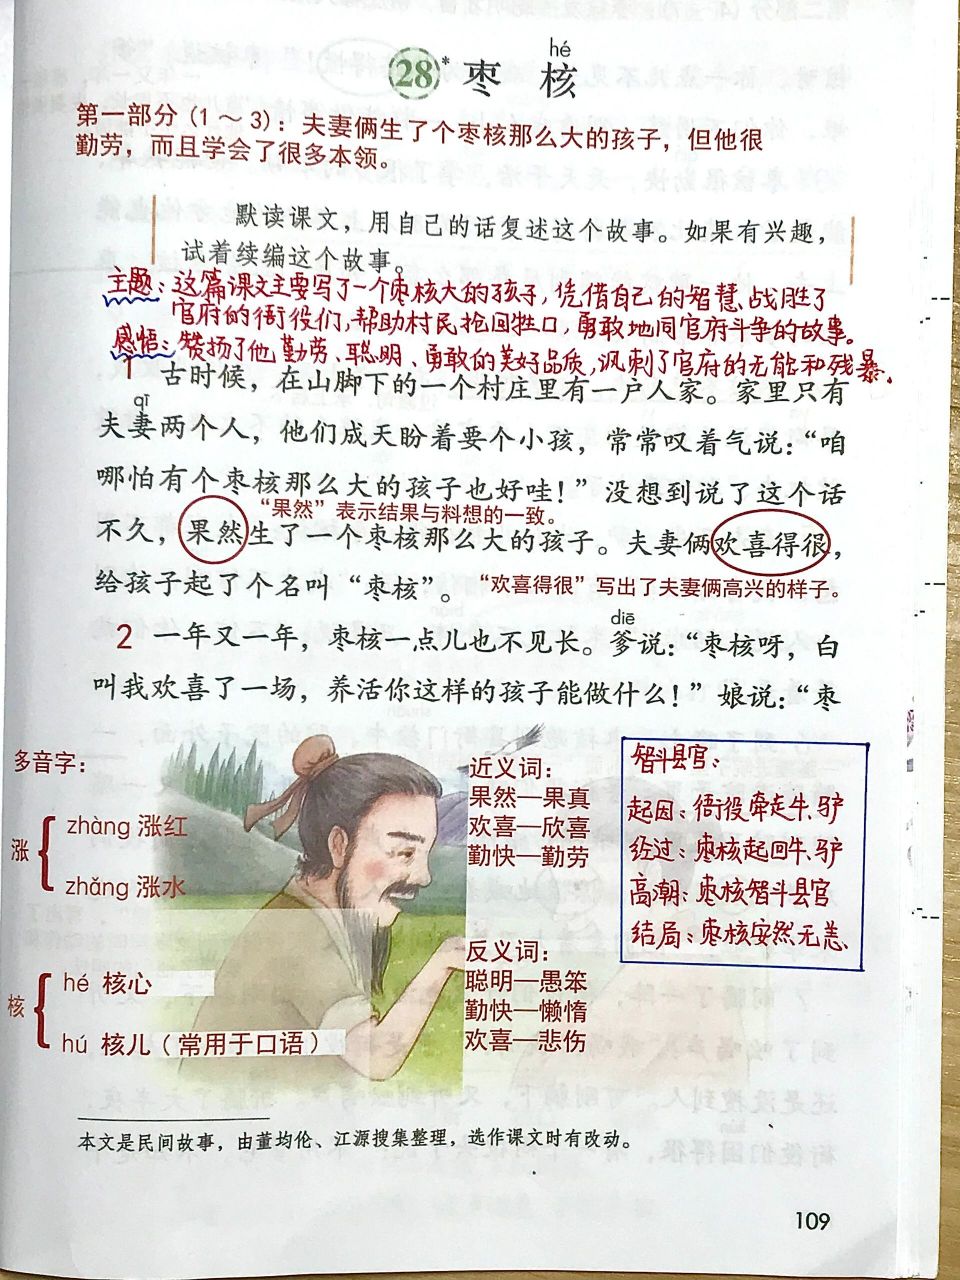 hé
28* 枣 核
第一部分（1～3）：夫妻俩生了个枣核那么大的孩子，但他很
勤劳，而且学会了很多本领。
默读课文，用自己的话复述这个故事。如果有兴趣，
试着续编这个故事。
主题：这篇课文主要写了一个枣核大的孩子，凭借自己的智慧、战胜了
官府的衙役们，帮助村民抢回牲口，勇敢地同官府斗争的故事。
感悟：赞扬了他勤劳、聪明、勇敢的美好品质，讽刺了官府的无能和残暴。
1 古时候，在山脚下的一个村庄里有一户人家。家里只有
qī
夫妻两个人，他们成天盼着要个小孩，常常叹着气说：“咱
哪怕有个枣核那么大的孩子也好哇！”没想到说了这个话
“果然”表示结果与料想的一致。
不久，果然生了一个枣核那么大的孩子。夫妻俩欢喜得很，
给孩子起了个名叫“枣核”。
“欢喜得很”写出了夫妻俩高兴的样子。
diē
2 一年又一年，枣核一点儿也不见长。爹说：“枣核呀，白
叫我欢喜了一场，养活你这样的孩子能做什么！”娘说：“枣
多音字：
涨
zhàng 涨红
zhǎng 涨水
核
hé 核心
hú 核儿（常用于口语）
近义词：
果然—果真
欢喜—欣喜
勤快—勤劳
反义词：
聪明—愚笨
勤快—懒惰
欢喜—悲伤
智斗县官：
起因：衙役牵走牛、驴
经过：枣核赶回牛、驴
高潮：枣核智斗县官
结局：枣核安然无恙、
本文是民间故事，由董均伦、江源搜集整理，选作课文时有改动。
109